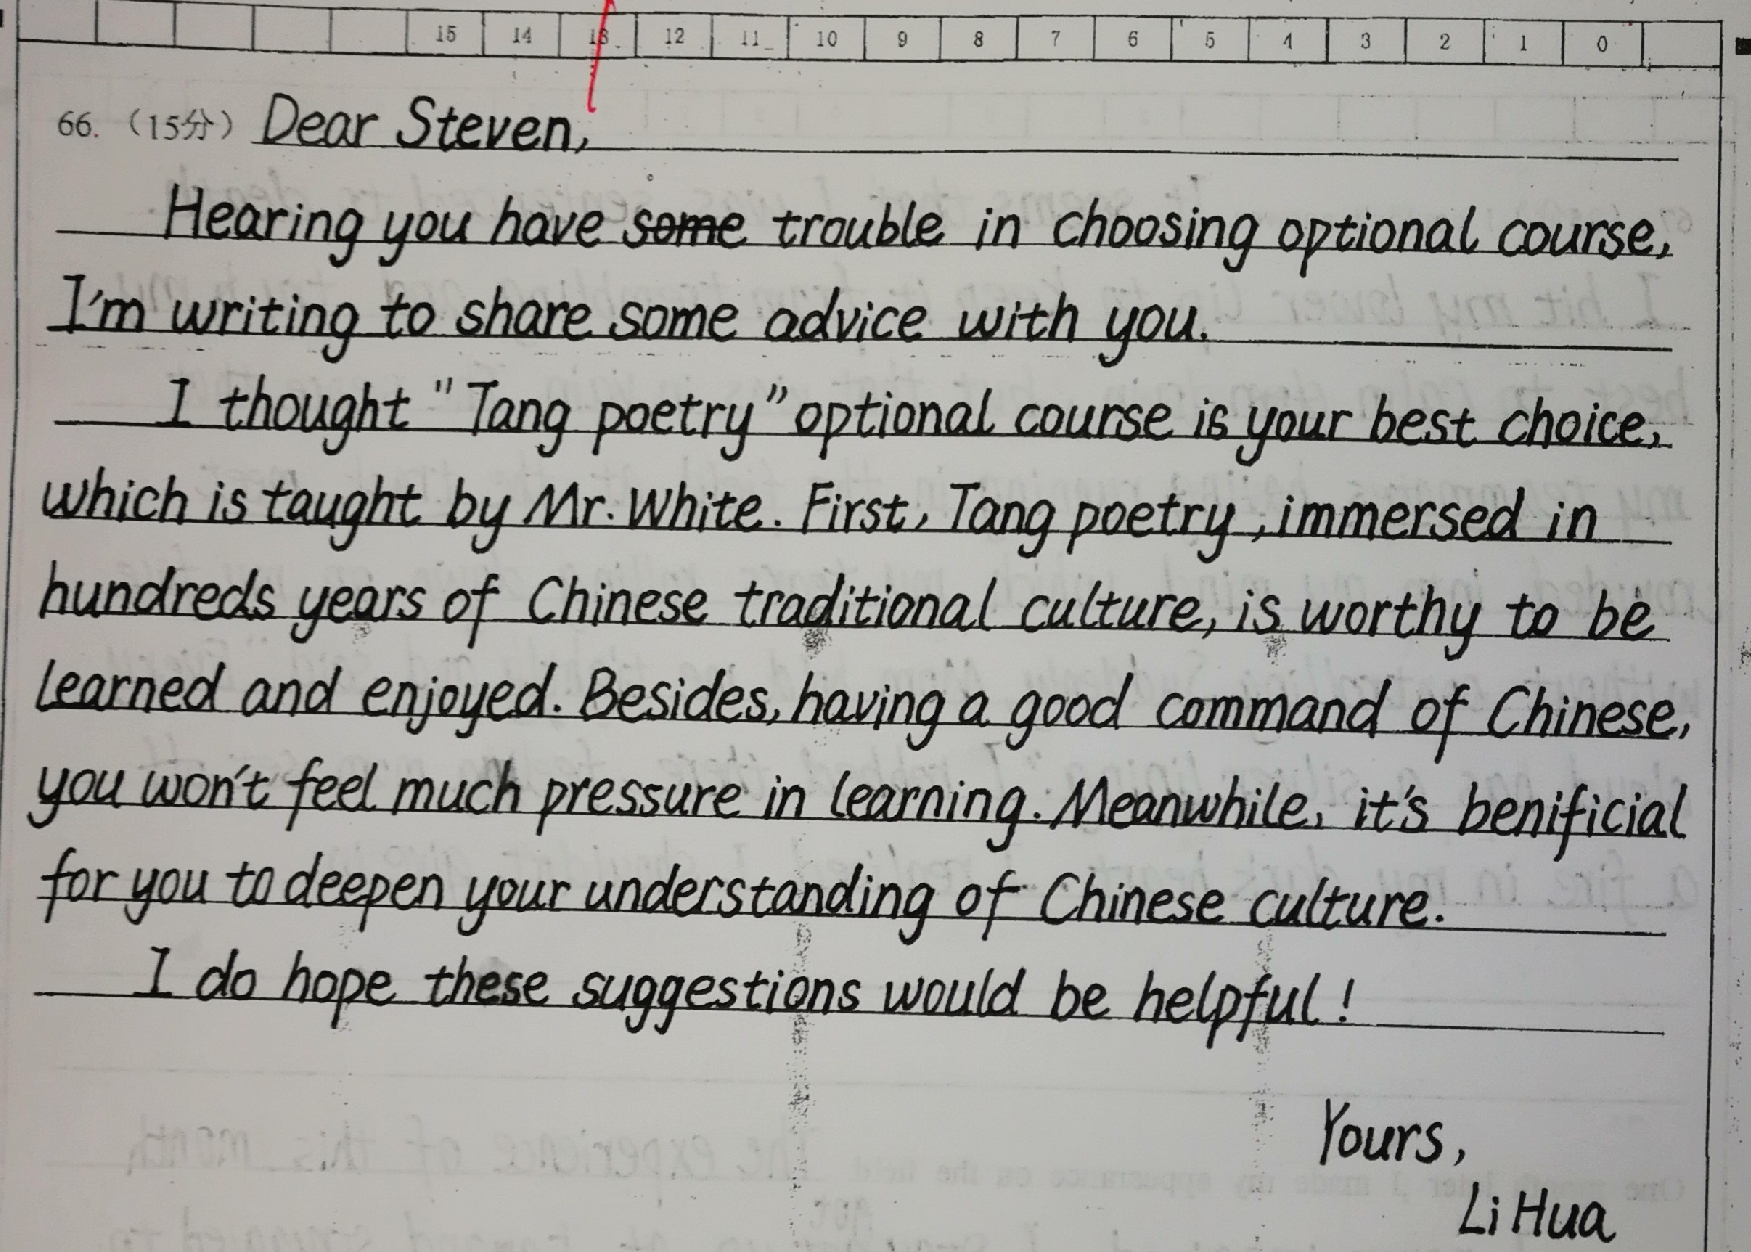 15 14 13 12 11 10 9 8 7 6 5 4 3 2 1 0
66. （15分） Dear Steven,
Hearing you have some trouble in choosing optional course,
I'm writing to share some advice with you.
I thought "Tang poetry" optional course is your best choice,
which is taught by Mr. White. First, Tang poetry, immersed in
hundreds years of Chinese traditional culture, is worthy to be
learned and enjoyed. Besides, having a good command of Chinese,
you won't feel much pressure in learning. Meanwhile, it's benificial
for you to deepen your understanding of Chinese culture.
I do hope these suggestions would be helpful!
Yours,
Li Hua